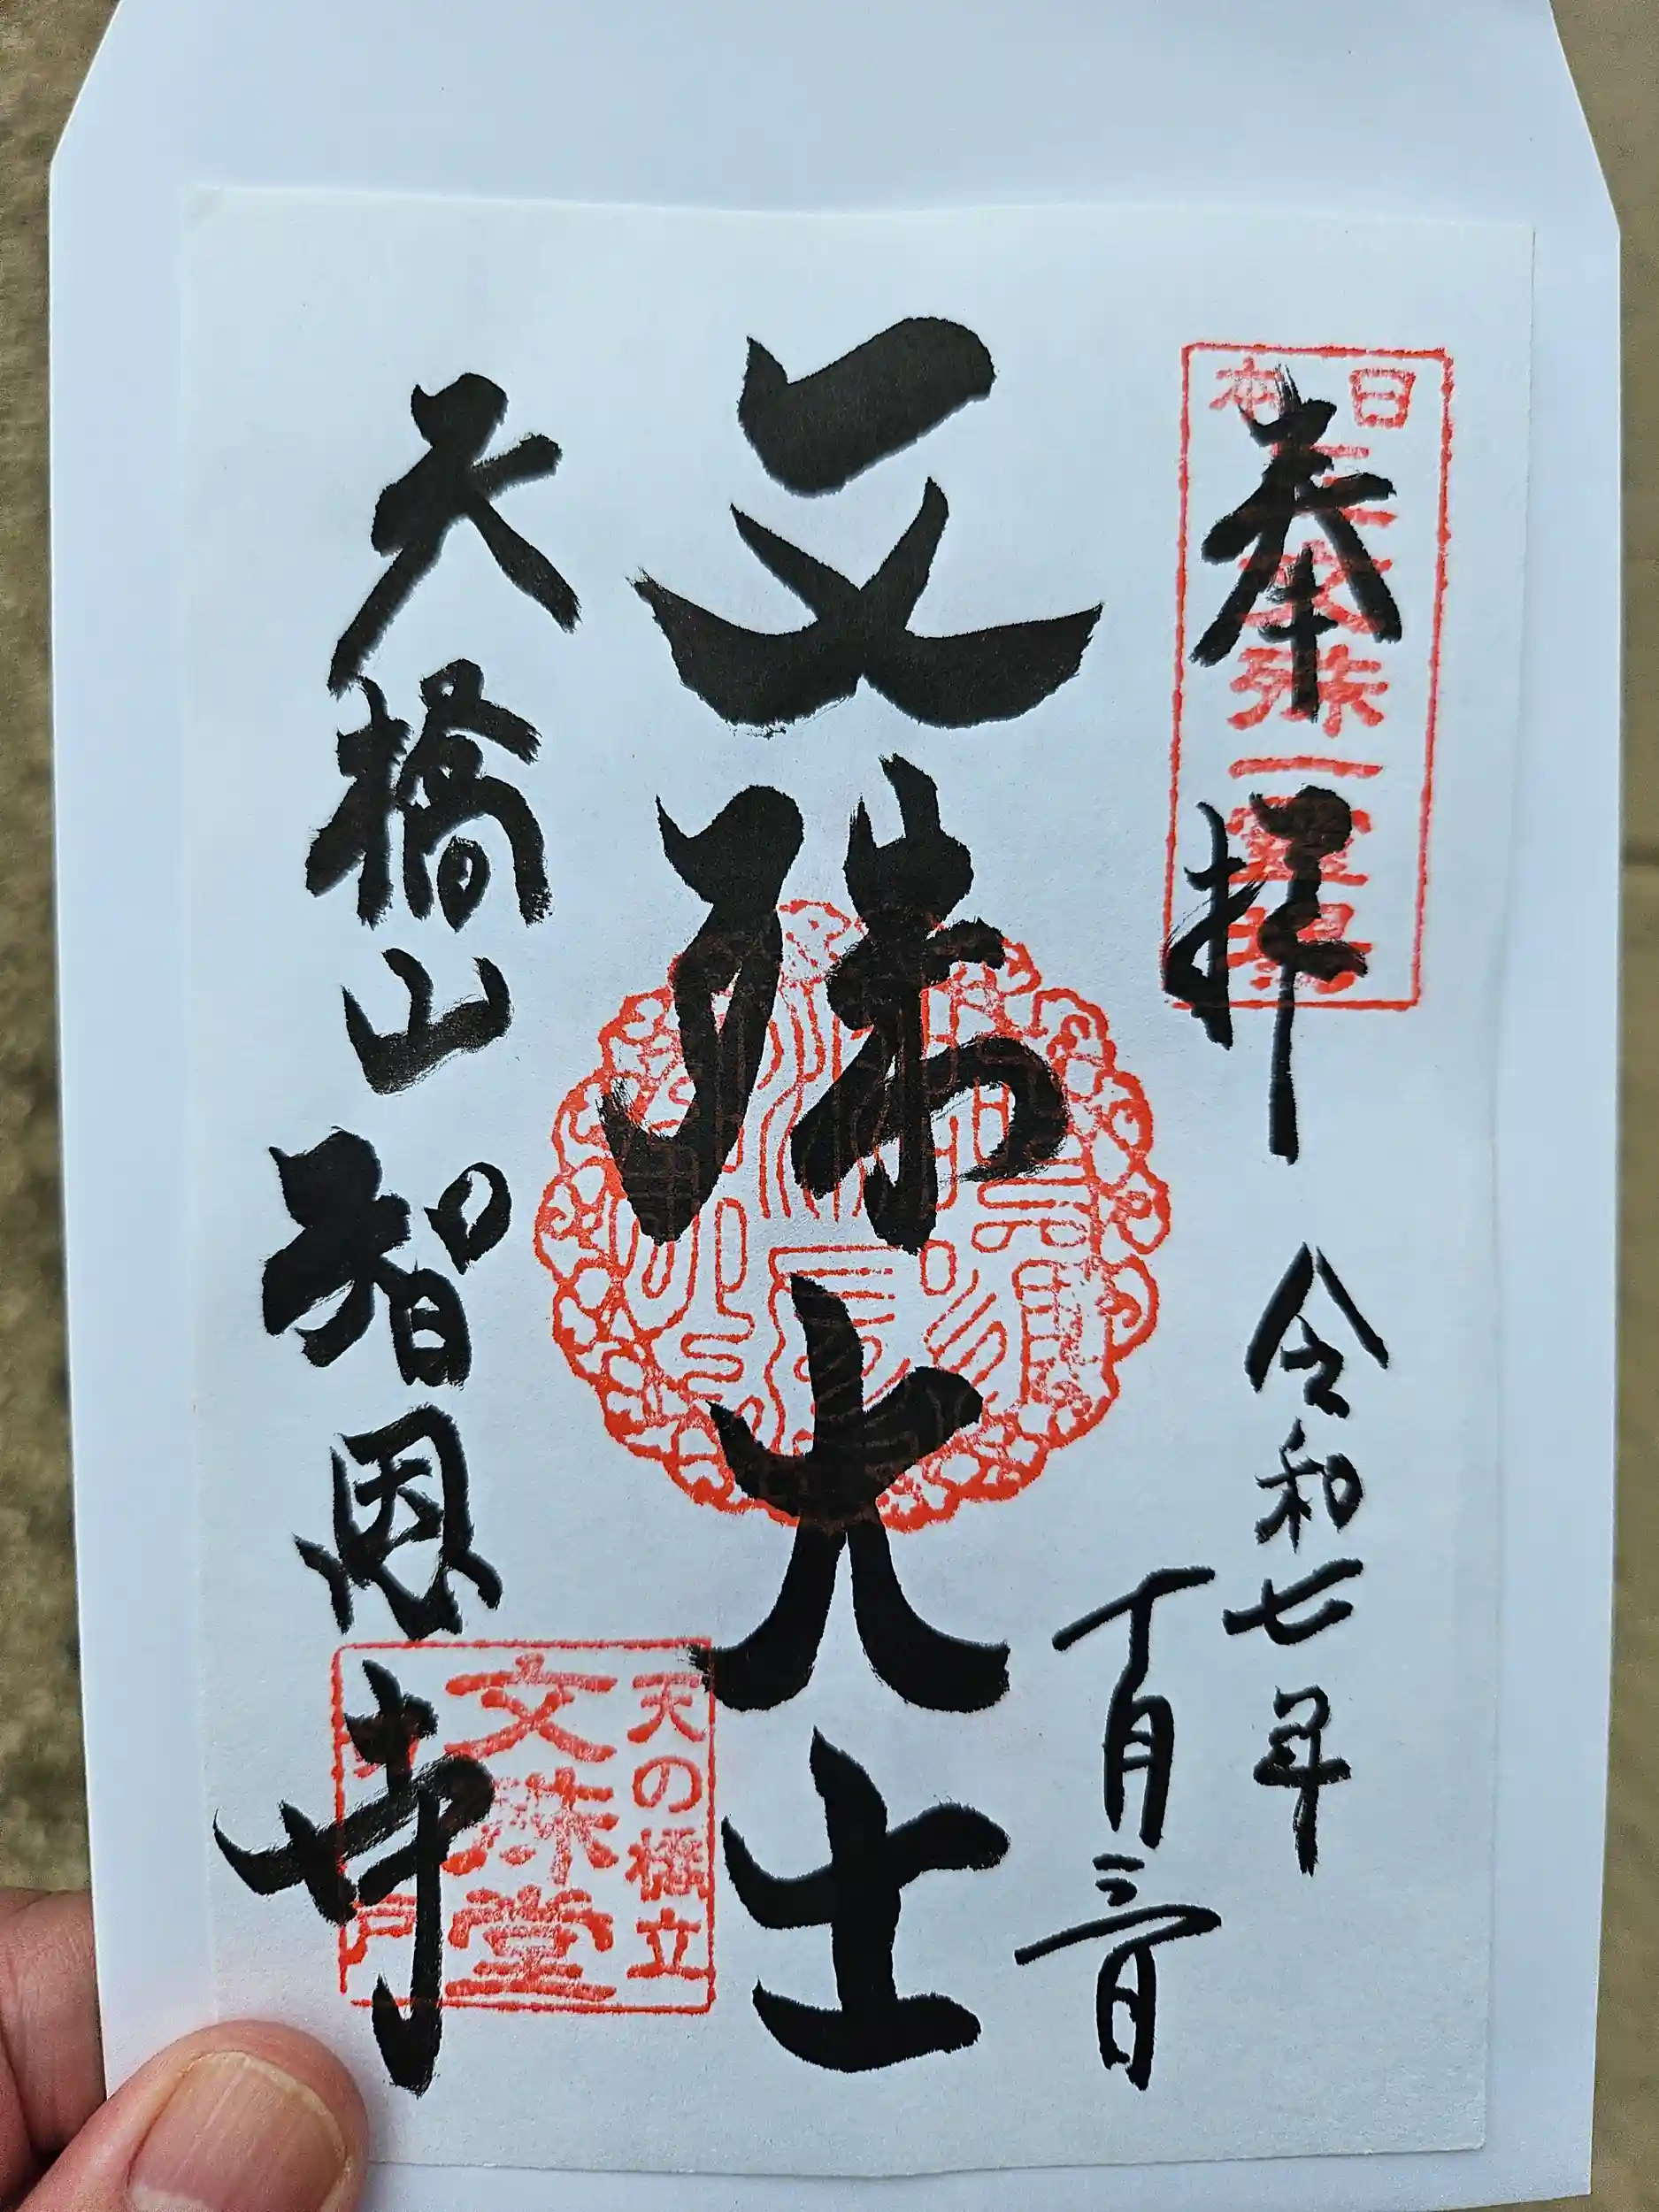 日本
三文殊一霊場
奉拝
令和七年
月三日
文殊大士
天橋山智恩寺
天の橋立
文殊堂
戸